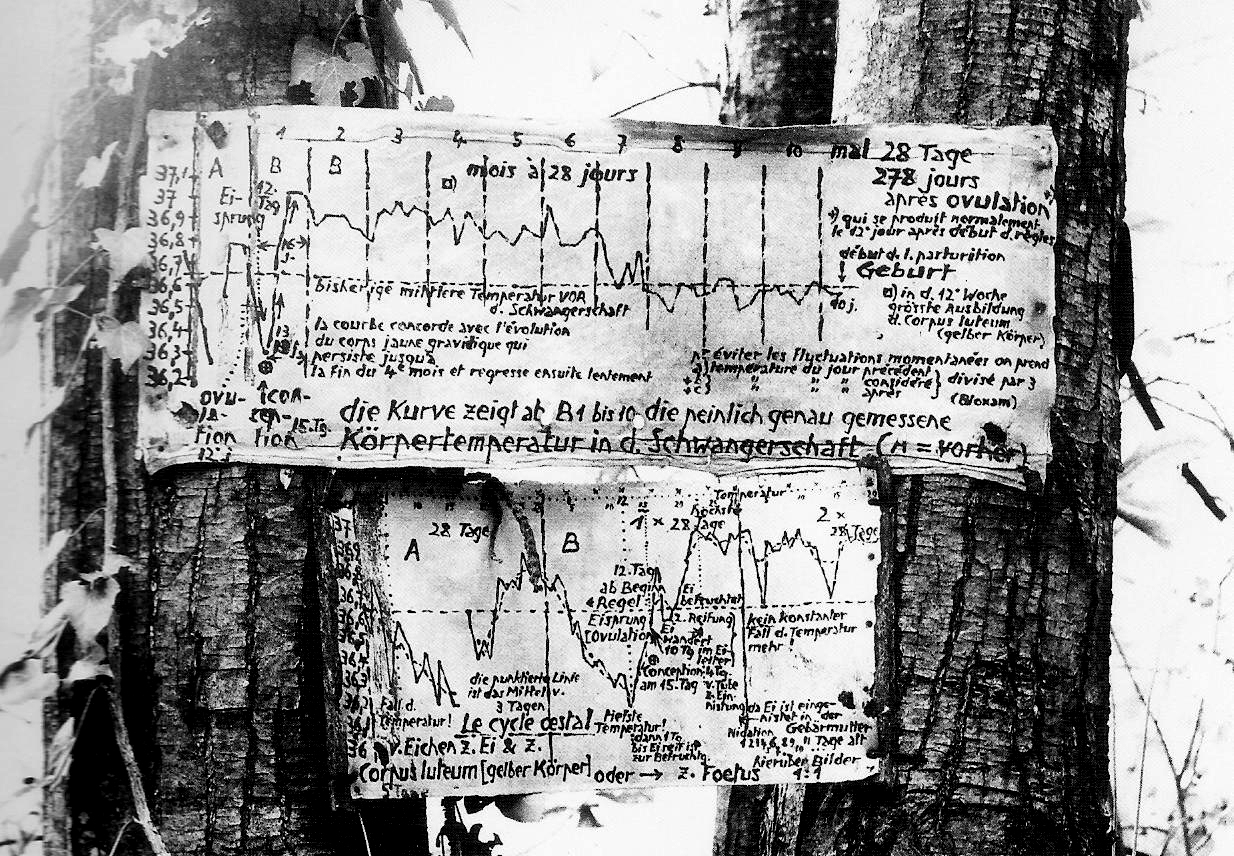 1 2 3 4 5 6 7 8 9 10 mal 28 Tage
A B B mois à 28 jours 278 jours
37,1
37
36,9
36,8
36,7
36,6
36,5
36,4
36,3
36,2
Ei-
sprung
12.
Tag
après ovulation
qui se produit normalement
le 12e jour après début d. règles
début d. l. parturition
Geburt
in d. 12e Woche
grösste Ausbildung
d. Corpus luteum
(gelber Körper)
bisherige mittlere Temperatur VOR
d. Schwangerschaft
la courbe concorde avec l'évolution
du corps jaune gravidique qui
persiste jusqu'à
la fin du 4e mois et regresse ensuite lentement
éviter les fluctuations momentanées on prend
température du jour précédent
" " " considéré
" " " après
divisé par 3
(Bloxam)
ovu-
la-
tion
12. j
con-
cep-
tion
15. Tg.
die Kurve zeigt ab B1 bis 10 die peinlich genau gemessene
Körpertemperatur in d. Schwangerschaft (A = vorher)
Temperatur
höchste
28 Tage
1 x 28 Tage
2 x
28 Tage
A B
37
36
12. Tag
ab Beginn
Regel
Eisprung
[Ovulation
Ei
befruchtet
(2. Reifung)
Ei
wandert
10 Tg im Ei-
leiter
Conception
am 15. Tag
Tube
z. Ein-
nistung
kein konstanter
Fall d. Temperatur
mehr!
die punktierte Linie
ist das Mittel v.
3 Tagen
Fall d.
Temperatur!
Le cycle œstal
Tiefste
Temperatur!
dann 1 Tg.
bis Ei reif ist
zur Befruchtg.
da Ei ist einge-
nistet in der
Gebärmutter
Nidation
Tage alt
hierüber Bilder
1:1
v. Eichen z. Ei & z.
Corpus luteum [gelber Körper] oder → z. Foetus
5 Tage